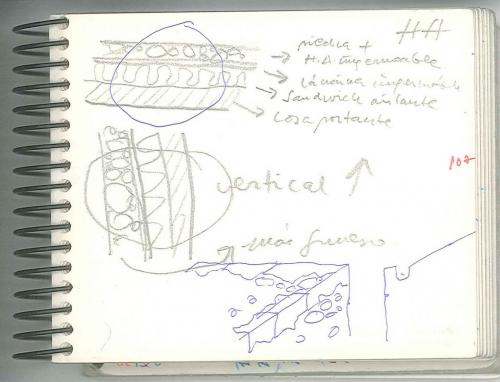 HA
piedra +
H.A. impermeable
lámina impermeable
Sandwich aislante
Losa portante
107
vertical
más grueso